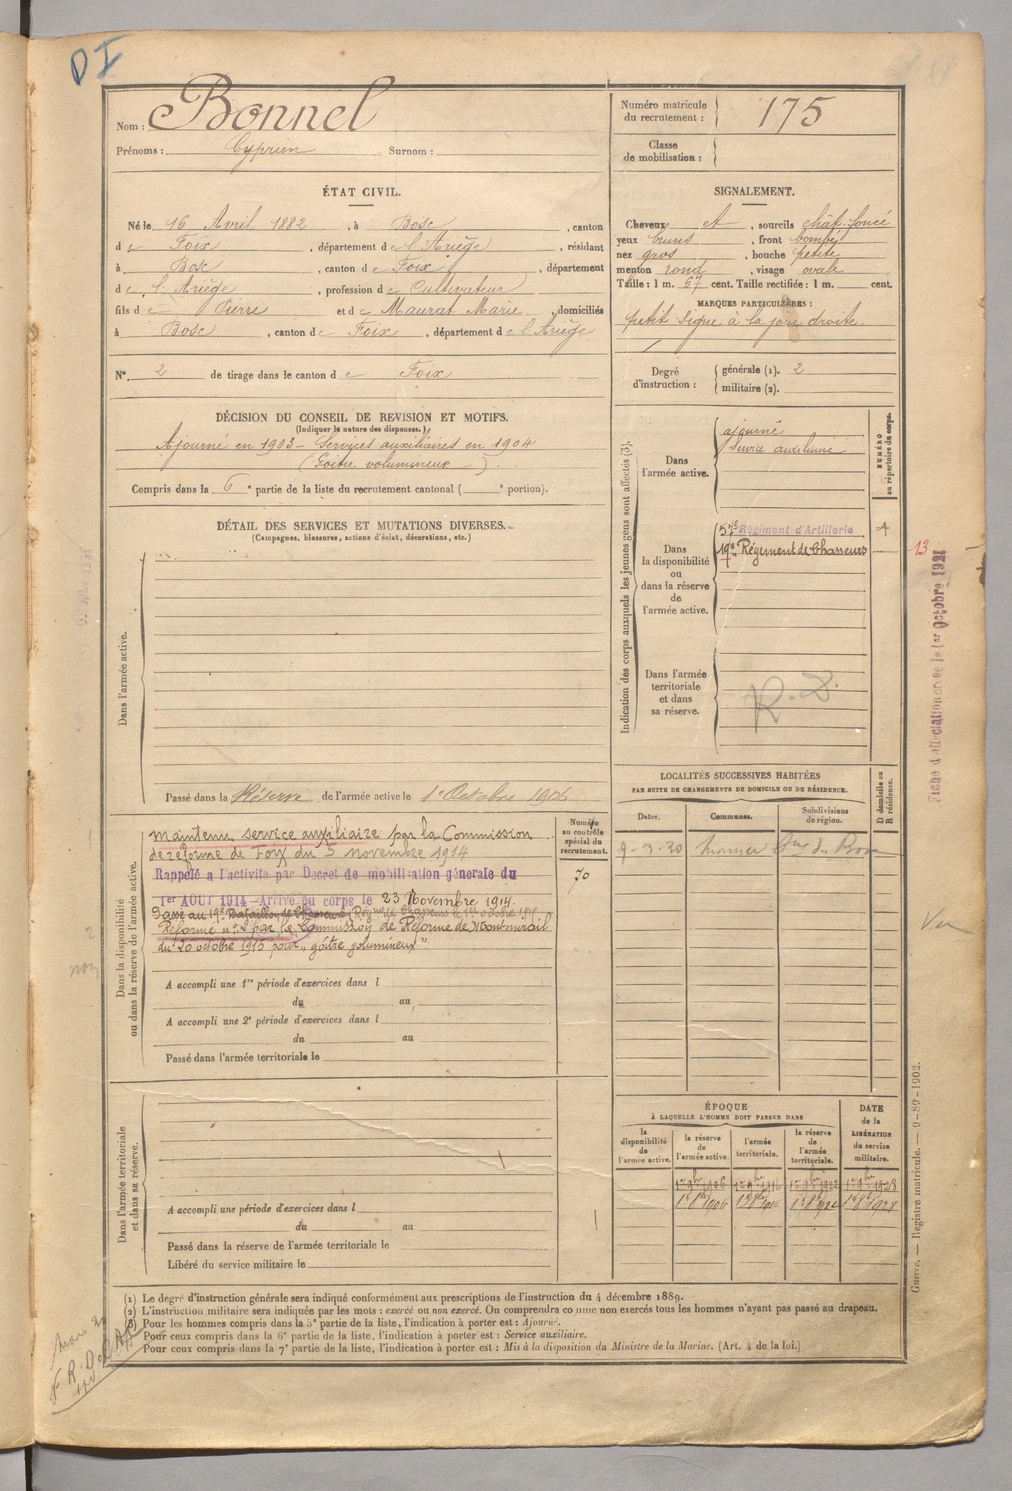 DI
Nom : Bonnel
Prénoms : Cyprien Surnom :
Numéro matricule
du recrutement : 175
Classe
de mobilisation :
ÉTAT CIVIL.
Né le 16 Avril 1882, à Bosc, canton
de Foix, département de l'Ariège, résidant
à Bosc, canton de Foix, département
de l'Ariège, profession de Cultivateur
fils de Pierre et de Maurat Marie, domiciliés
à Bosc, canton de Foix, département de l'Ariège
N° 2 de tirage dans le canton de Foix
SIGNALEMENT.
Cheveux et, sourcils chât. foncé
yeux bruns, front bombé
nez gros, bouche petite
menton rond, visage ovale
Taille : 1 m. 67 cent. Taille rectifiée : 1 m. cent.
MARQUES PARTICULIÈRES :
petit signe à la joue droite.
Degré
d'instruction :
générale (1). 2
militaire (2).
DÉCISION DU CONSEIL DE REVISION ET MOTIFS.
(Indiquer la nature des dispenses.)
Ajourné en 1903 - Services auxiliaires en 1904
(Goitre volumineux).
Compris dans la 6e partie de la liste du recrutement cantonal ( e portion).
DÉTAIL DES SERVICES ET MUTATIONS DIVERSES.
(Campagnes, blessures, actions d'éclat, décorations, etc.)
Dans l'armée active.
Passé dans la Réserve de l'armée active le 1er Octobre 1906
Indication des corps auxquels les jeunes gens sont affectés (3).
NUMÉRO
au répertoire du corps.
Dans
l'armée active.
ajourné
Service auxiliaire
Dans
la disponibilité
ou
dans la réserve
de
l'armée active.
57e Régiment d'Artillerie
19e Régiment de Chasseurs
13
Dans l'armée
territoriale
et dans
sa réserve.
R. D.
Fiche d'affectation créée le 1er Octobre 1921
Dans la disponibilité
ou dans la réserve de l'armée active.
Numéro
au contrôle
spécial du
recrutement.
70
Maintenu service auxiliaire par la Commission
de réforme de Foix du 5 novembre 1914
Rappelé à l'activité par Decret de mobilisation générale du
1er AOUT 1914 - Arrivé au corps le 23 Novembre 1914.
Passé au 19e Bataillon de Chasseurs (Régt de Chasseurs le 1er octobre 1915
Réformé n° 2 par la Commission de Réforme de Montmirail
du 20 octobre 1915 pour "goitre volumineux"
A accompli une 1re période d'exercices dans l
du au
A accompli une 2e période d'exercices dans l
du au
Passé dans l'armée territoriale le
LOCALITÉS SUCCESSIVES HABITÉES
PAR SUITE DE CHANGEMENTS DE DOMICILE OU DE RÉSIDENCE.
Dates. Communes. Subdivisions
de région.
D domicile ou
R résidence.
9-3-20
Dans l'armée territoriale
et dans sa réserve.
A accompli une période d'exercices dans l
du au
Passé dans la réserve de l'armée territoriale le
Libéré du service militaire le
ÉPOQUE
À LAQUELLE L'HOMME DOIT PASSER DANS
DATE
de la
LIBÉRATION
du service
militaire.
la
disponibilité
de
l'armée active.
la réserve
de
l'armée active.
l'armée
territoriale.
la réserve
de
l'armée
territoriale.
1er 9bre 1906 1er 9bre 1916 1er 9bre 1922 1er 9bre 1928
1er 8bre 1906 1er 8bre 1916 1er 8bre 1922 1er 8bre 1928
Guerre. — Registre matricule. — 9-89-1902.
(1) Le degré d'instruction générale sera indiqué conformément aux prescriptions de l'instruction du 4 décembre 1889.
(2) L'instruction militaire sera indiquée par les mots : exercé ou non exercé. On comprendra comme non exercés tous les hommes n'ayant pas passé au drapeau.
(3) Pour les hommes compris dans la 5e partie de la liste, l'indication à porter est : Ajourné.
Pour ceux compris dans la 6e partie de la liste, l'indication à porter est : Service auxiliaire.
Pour ceux compris dans la 7e partie de la liste, l'indication à porter est : Mis à la disposition du Ministre de la Marine. (Art. 4 de la loi.)